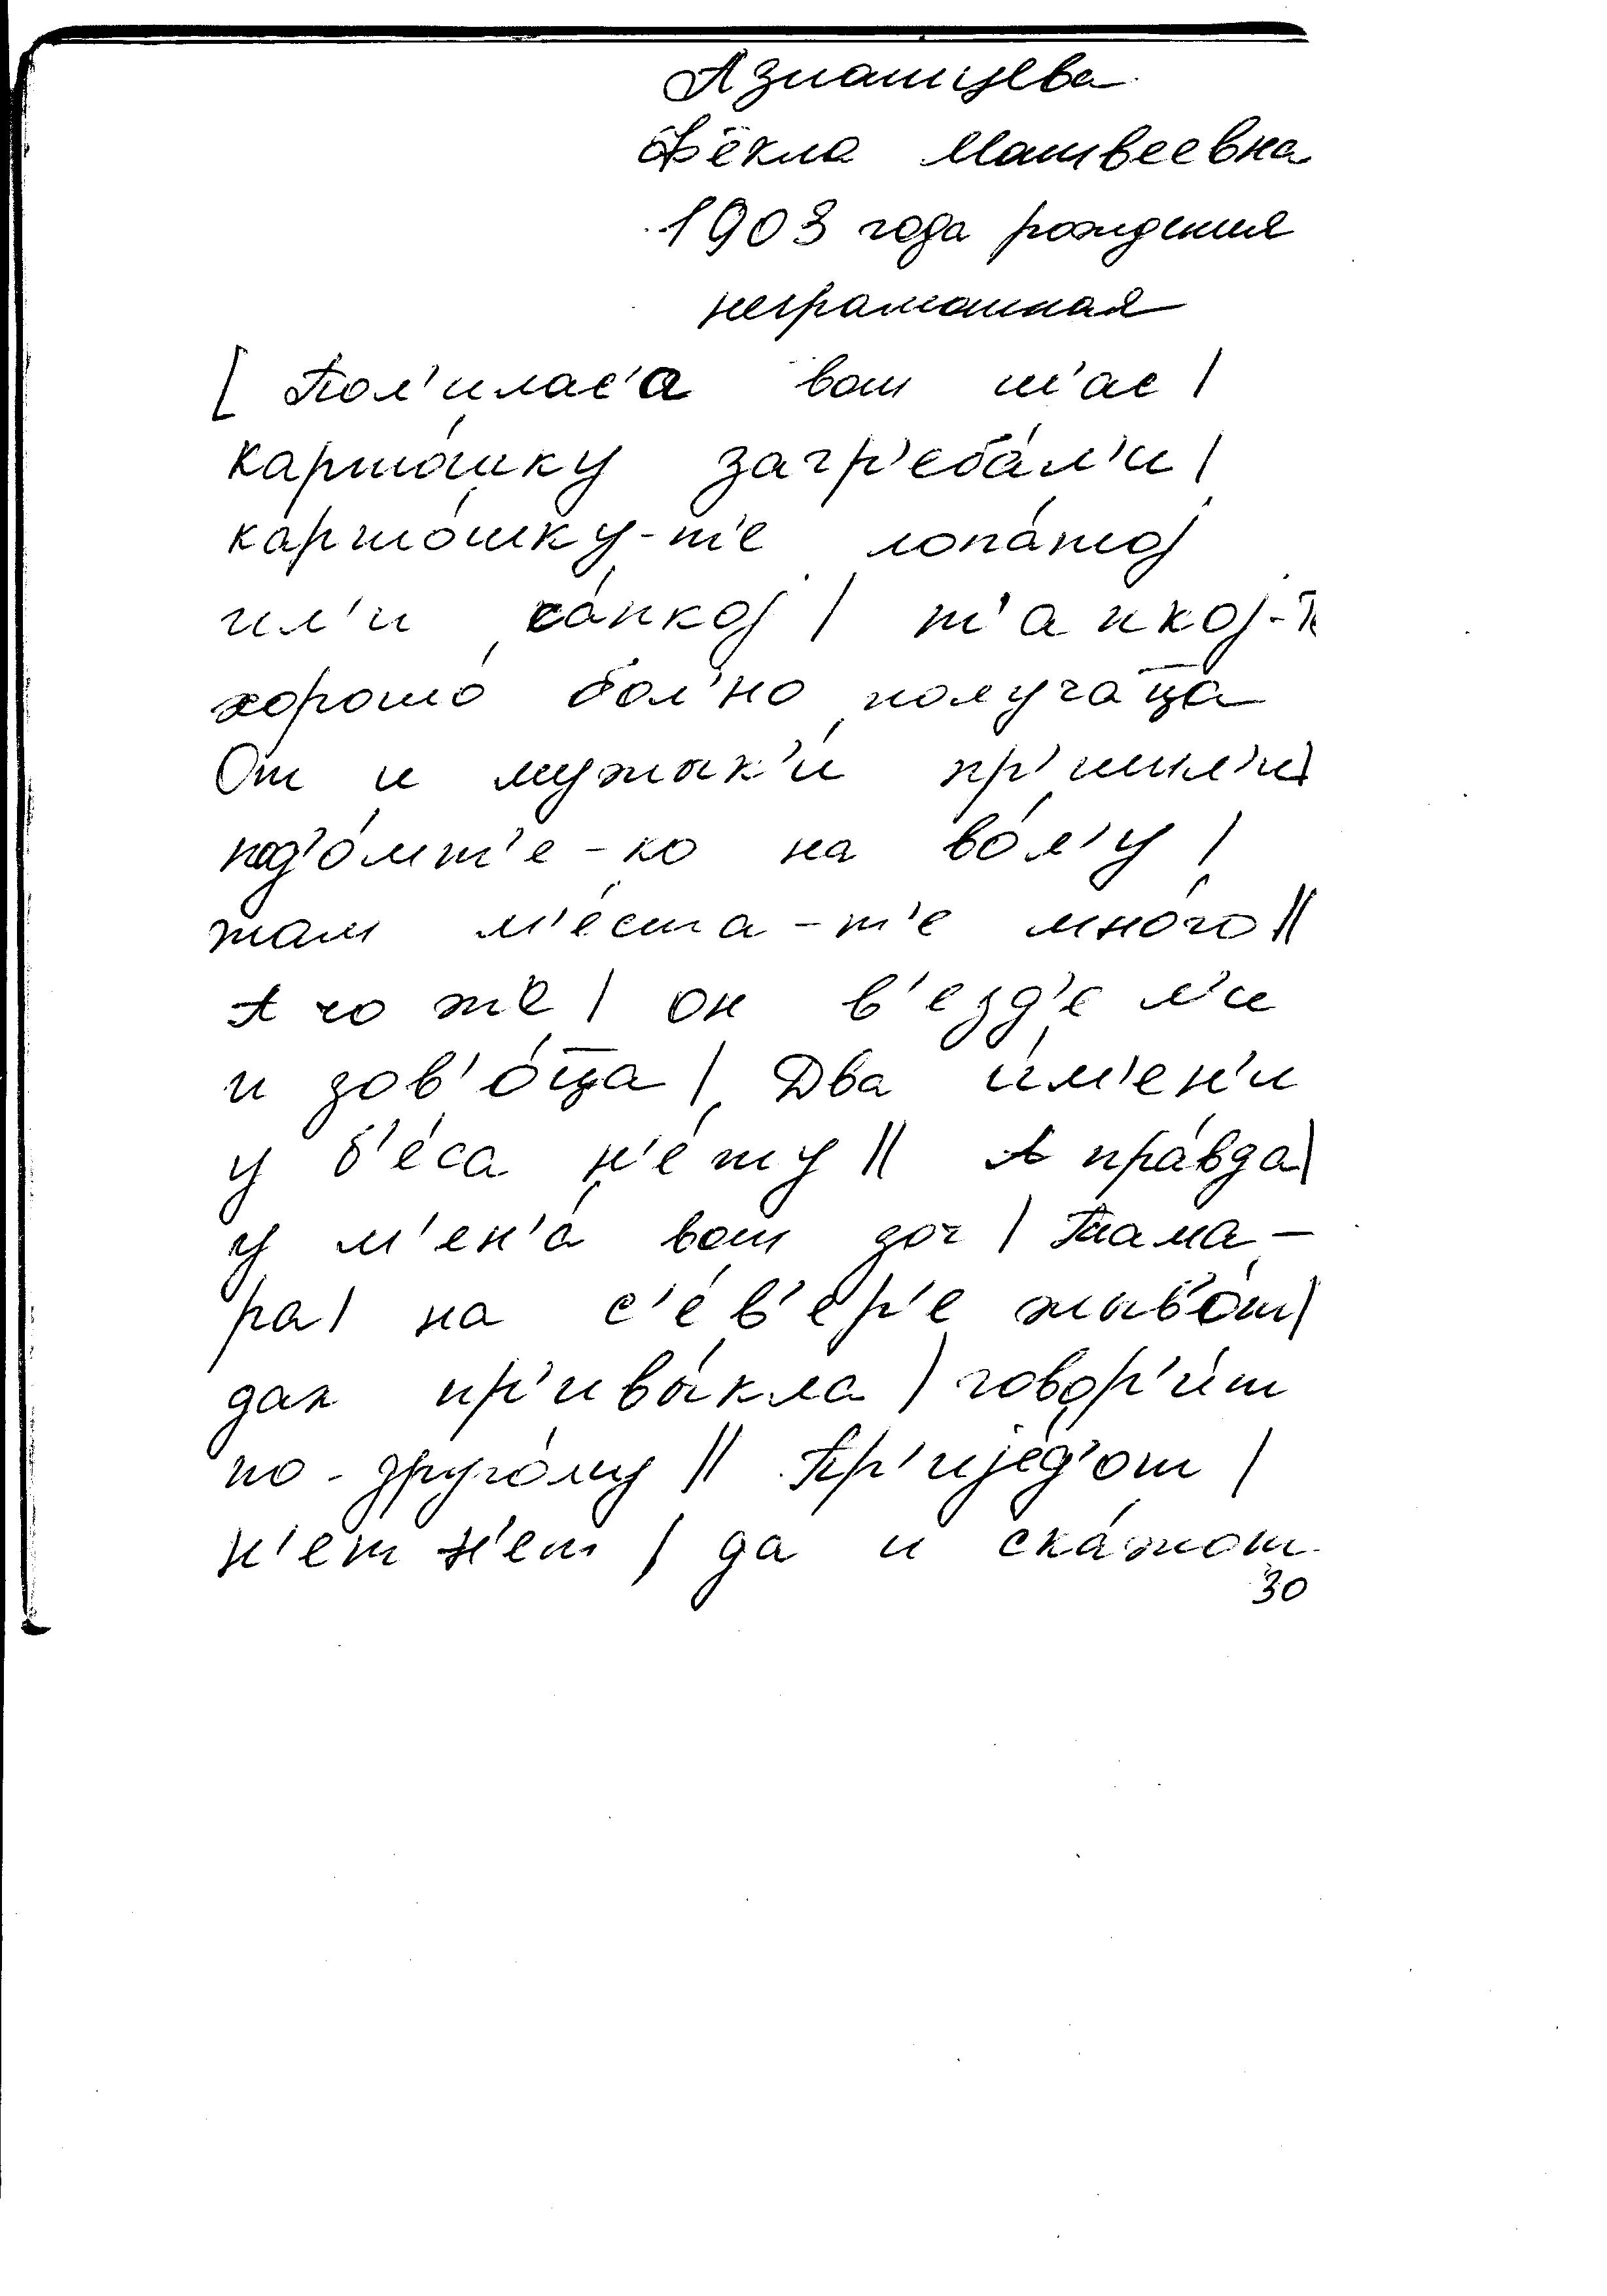 Азиатцева
Фёкла Матвеевна
1903 года рождения
неграмотная
[ Пол'илас'а вот ш'ас |
карто́шку загр'еба́л'и |
карто́шку-т'е лопа́тој
ил'и са́пкој | т'апкој-т
хорошо́ бол'но получаца
От и мужык'и́ пр'ишл'и|
под'о́мт'е-ко на во́л'у |
там м'е́ста-т'е мно́го ||
А чо же | он в'езд'е л'и
и зов'о́ца | Два и́м'ен'и
у б'е́са н'е́ту || А пра́вда|
у м'ен'а́ вот доч | Тама-
ра| на с'е́в'ер'е жыв'о́т|
дак пр'ивы́кла | говор'и́т
по-друго́му || Пр'ије́д'от |
н'ет н'ет | да и ска́жот
30